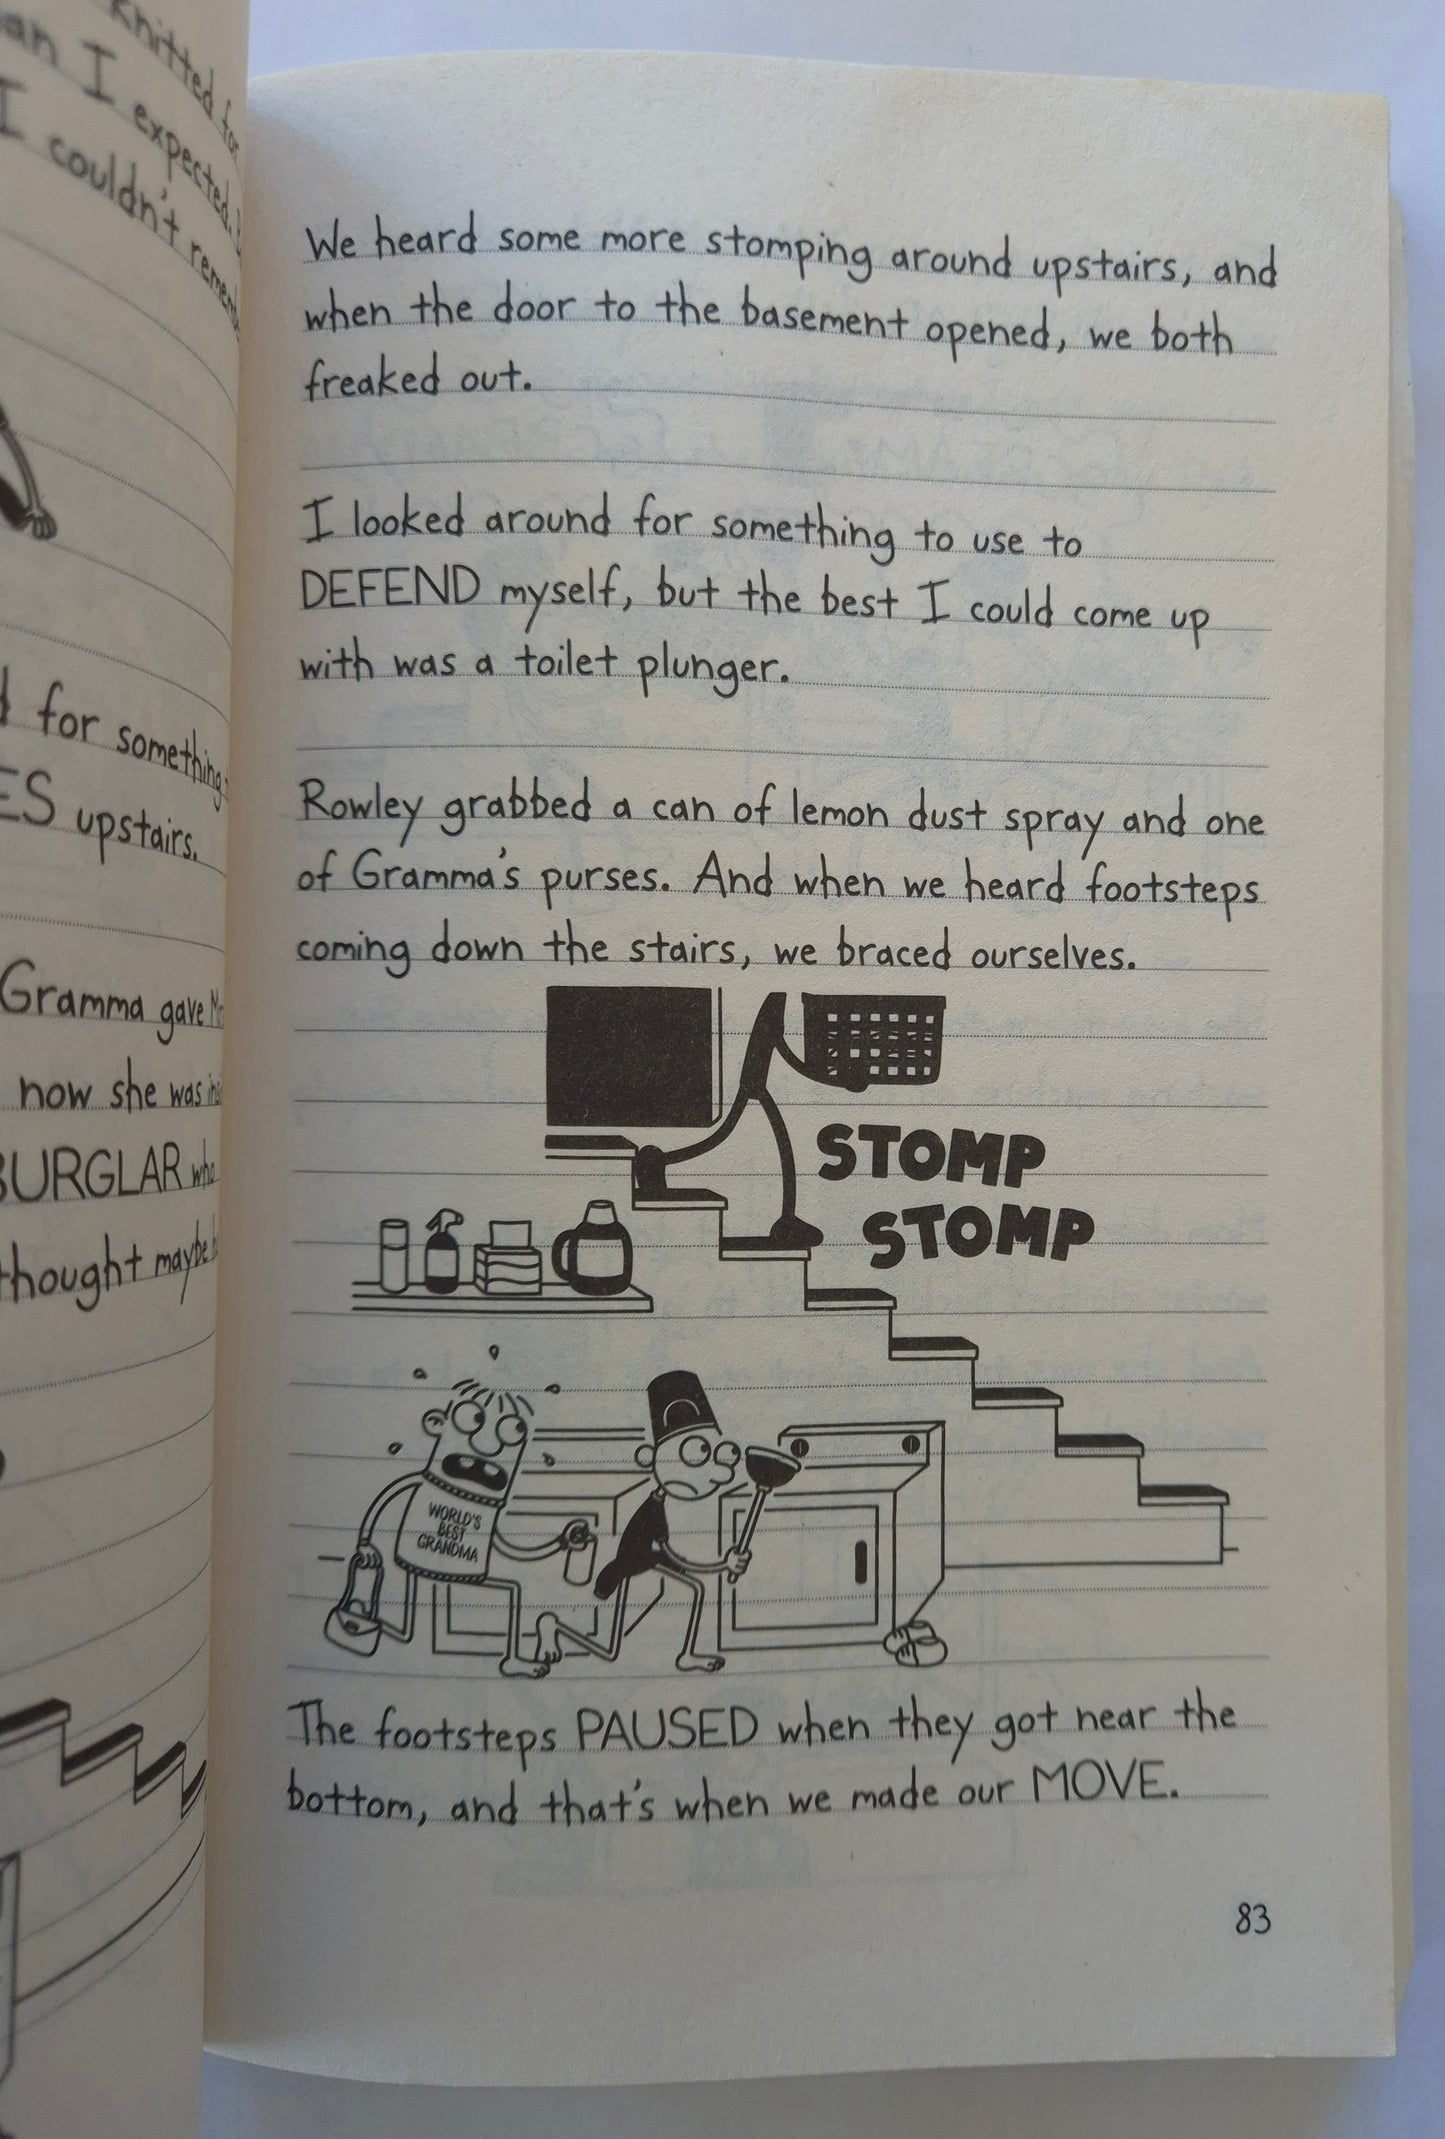 knitted for
an I expected.
I couldn't
for something
ES upstairs.
Gramma gave
now she was
BURGLAR
thought maybe
We heard some more stomping around upstairs, and
when the door to the basement opened, we both
freaked out.
I looked around for something to use to
DEFEND myself, but the best I could come up
with was a toilet plunger.
Rowley grabbed a can of lemon dust spray and one
of Gramma's purses. And when we heard footsteps
coming down the stairs, we braced ourselves.
STOMP
STOMP
WORLD'S
BEST
GRANDMA
The footsteps PAUSED when they got near the
bottom, and that's when we made our MOVE.
83